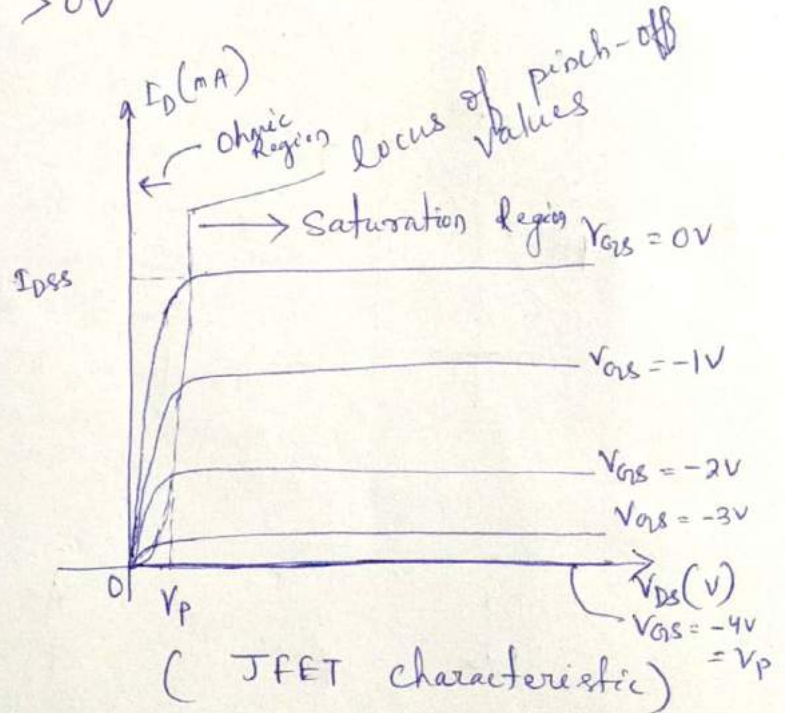 > 0V
I_D (mA)
Ohmic
Region
locus of pinch-off
values
Saturation Region
V_GS = 0V
I_DSS
V_GS = -1V
V_GS = -2V
V_GS = -3V
0
V_P
V_DS (V)
V_GS = -4V
= V_P
( JFET characteristic)